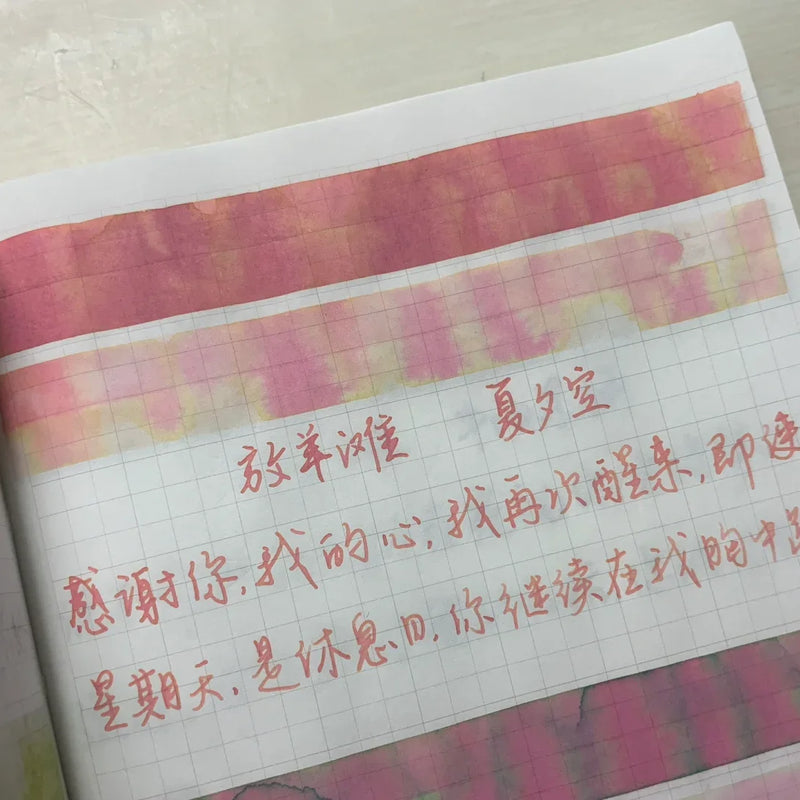 放羊滩 夏夕空
感谢你,我的心,我再次醒来,即使
星期天,是休息日,你继续在我的中